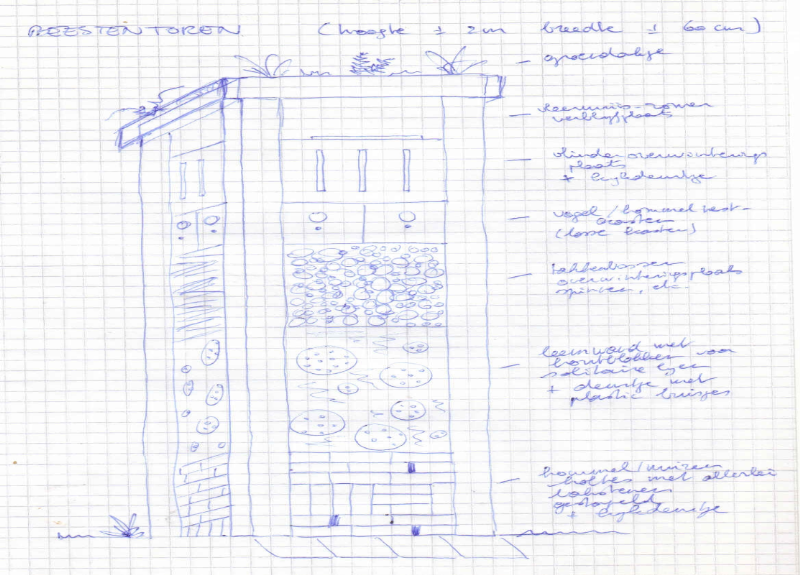 BEESTENTOREN (hoogte ± 2m breedte ± 60 cm)
- groendakje
- vleermuis-zomer
verblijfplaats
- vlinder-overwinterings
plaats
+ kijkdeurtje
- vogel/hommel nest-
kasten
(losse kasten)
- takkenbossen
overwinteringsplaats
spinnen, etc.
- leemwand met
houtblokken voor
solitaire bijen
+ deurtje met
plastic buisjes
- hommel/muizen
holtes met allerlei
bakstenen
gestapeld
+ kijkdeurtje